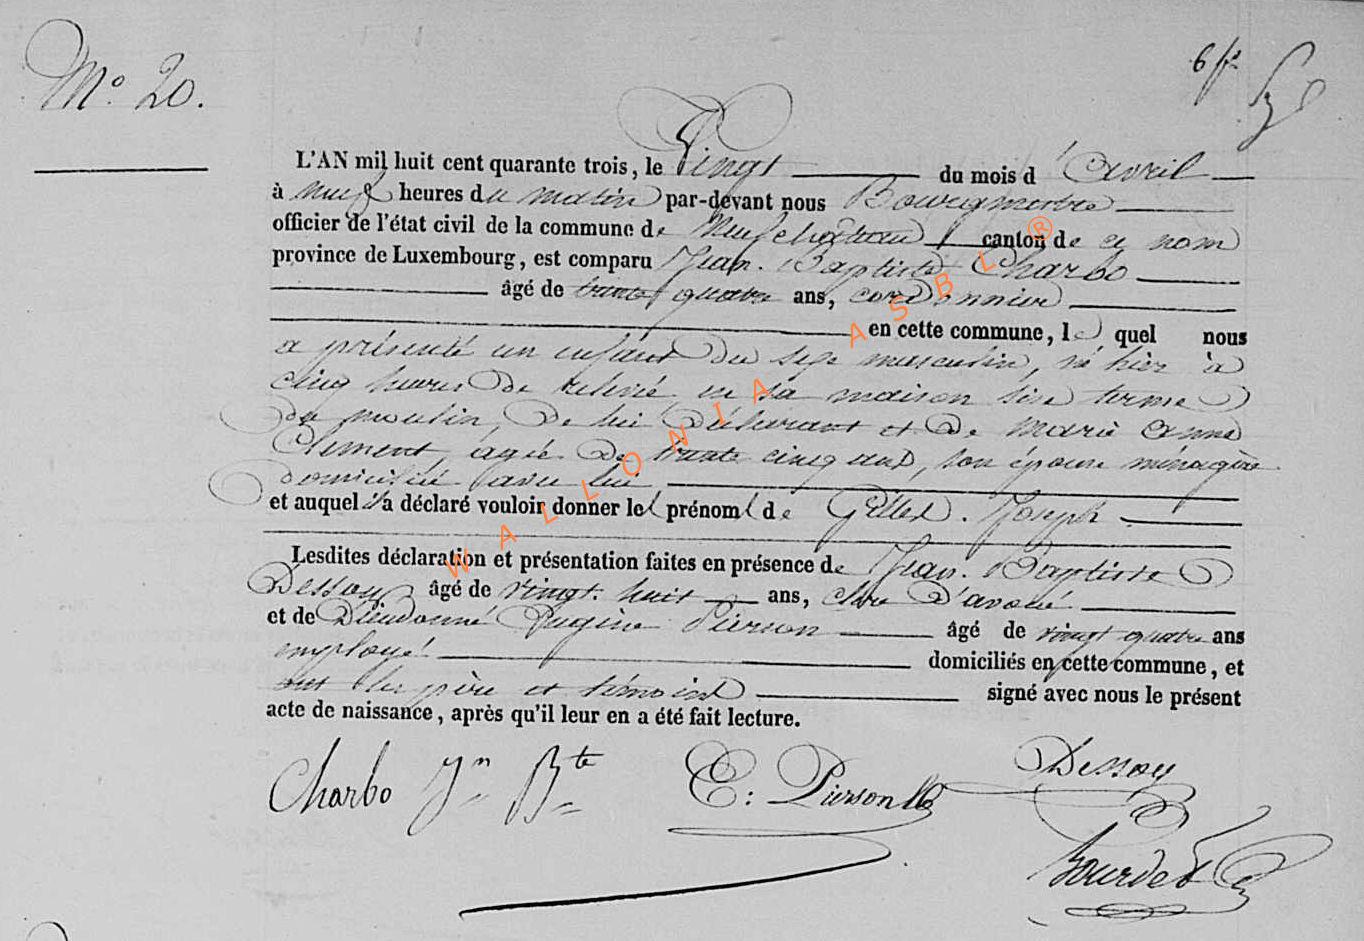 N° 20.
6 f°
L'AN mil huit cent quarante trois, le Vingt du mois d'Avril
à neuf heures du matin par-devant nous Bourgmestre
officier de l'état civil de la commune de Neufchâteau canton de ce nom
province de Luxembourg, est comparu Jean-Baptiste Charbo
âgé de trente quatre ans, cordonnier
en cette commune, lequel nous
a présenté un enfant du sexe masculin, né hier à
cinq heures de relevée, en sa maison sise terme
du moulin, de lui déclarant et de Marie Anne
Clement, agée de trente cinq ans, son épouse ménagère
domiciliée avec lui
et auquel il a déclaré vouloir donner les prénoms de Gilles-Joseph
Lesdites déclaration et présentation faites en présence de Jean-Baptiste
Dessoy âgé de vingt huit ans, clerc d'avoué
et de Dieudonné Eugène Pierson âgé de vingt quatre ans
employé domiciliés en cette commune, et
ont les père et témoins signé avec nous le présent
acte de naissance, après qu'il leur en a été fait lecture.
Charbo Jn Bte E: Pierson Dessoy
Bourdet
WALLONIA ASBL ®